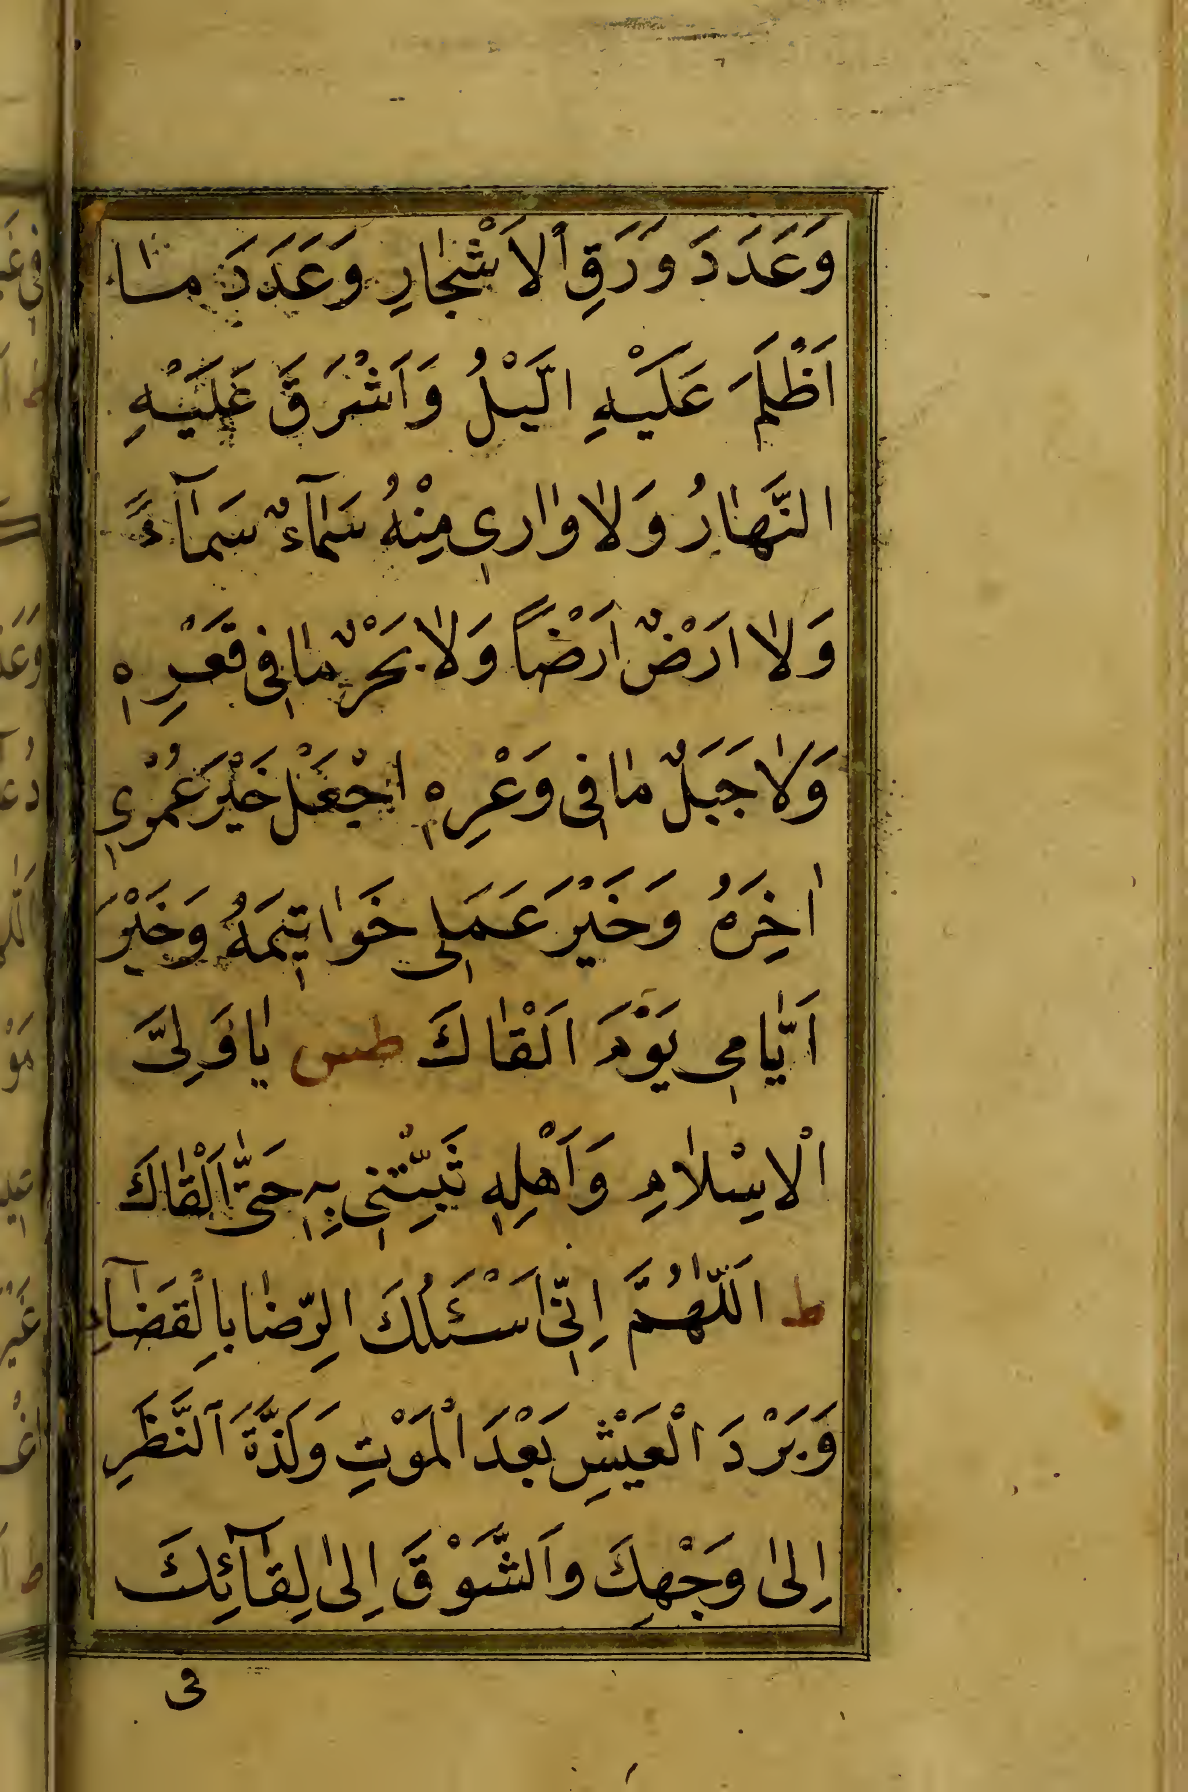 وَعَدَدَ وَرَقِ الْاَشْجَارِ وَعَدَدَ مَا
اَظْلَمَ عَلَيْهِ الَّيْلُ وَاَشْرَقَ عَلَيْهِ
النَّهَارُ وَلَا وَارٰى مِنْهُ سَمَآءٌ سَمَآءً
وَلَا اَرْضٌ اَرْضًا وَلَا بَحْرٌ مَا فِى قَعْرِهٖ
وَلَا جَبَلٌ مَا فِى وَعْرِهٖ اجْعَلْ خَيْرَ عُمْرٖى
اٰخِرَهُ وَخَيْرَ عَمَلٖى خَوَاتٖيمَهُ وَخَيْرَ
اَيَّامٖى يَوْمَ اَلْقَاكَ طس يَا وَلِىَّ
الْاِسْلَامِ وَاَهْلِهٖ ثَبِّتْنٖى بِهٖ حَتّٰى اَلْقَاكَ
ط اَللّٰهُمَّ اِنّٖى اَسْئَلُكَ الرِّضَا بِالْقَضَآءِ
وَبَرْدَ الْعَيْشِ بَعْدَ الْمَوْتِ وَلَذَّةَ النَّظَرِ
اِلٰى وَجْهِكَ وَالشَّوْقَ اِلٰى لِقَآئِكَ
فى